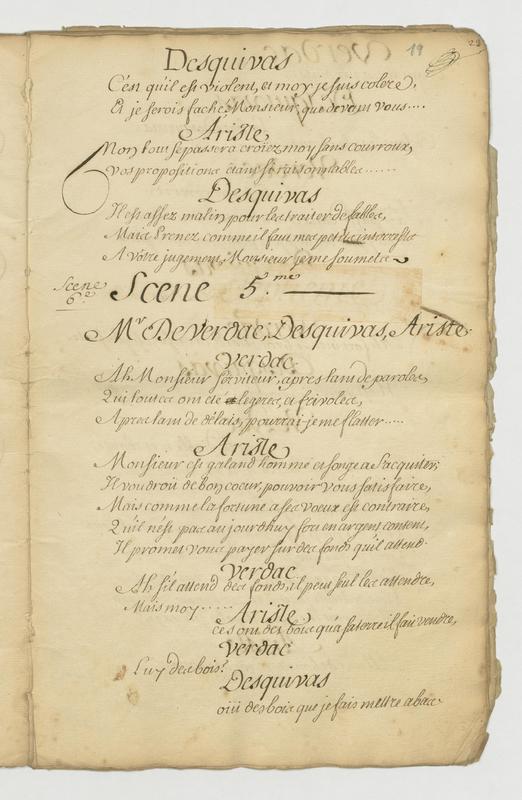 19
Desquivas
C'est qu'il est violent, et moy je suis colere,
Et je serois faché Monsieur, que devant vous....
Ariste
Mon, tout se passera croiez moy sans courroux,
Vos propositions étant si raisonnables......
Desquivas
Il est assez malin pour les traiter de fables,
Mais Prenez comme il faut mes petits interrests
A vôtre jugement, Monsieur je me soumets
Scene
6.e
Scene 5.me
Mr De Verdac, Desquivas, Ariste
Verdac
Ah Monsieur serviteur, apres tant de paroles,
Qui toutes ont été legeres, et frivoles,
Apres tant de délais, pourrai-je me flatter.....
Ariste
Monsieur est galand homme et songe a s'acquiter;
Il voudroit de bon coeur, pouvoir vous satisfaire,
Mais comme la fortune a ses voeux est contraire,
Qu'il n'est pas aujourdhuy fort en argent content,
Il promet vous payer sur des fonds qu'il attend.
Verdac
Ah s'il attend des fonds, il peut seul les attendre,
Mais moy.....
Ariste
ce sont des bois qu'a sa terre il fait vendre,
Verdac
Luy des bois?
Desquivas
oüi des bois que je fais mettre a bas